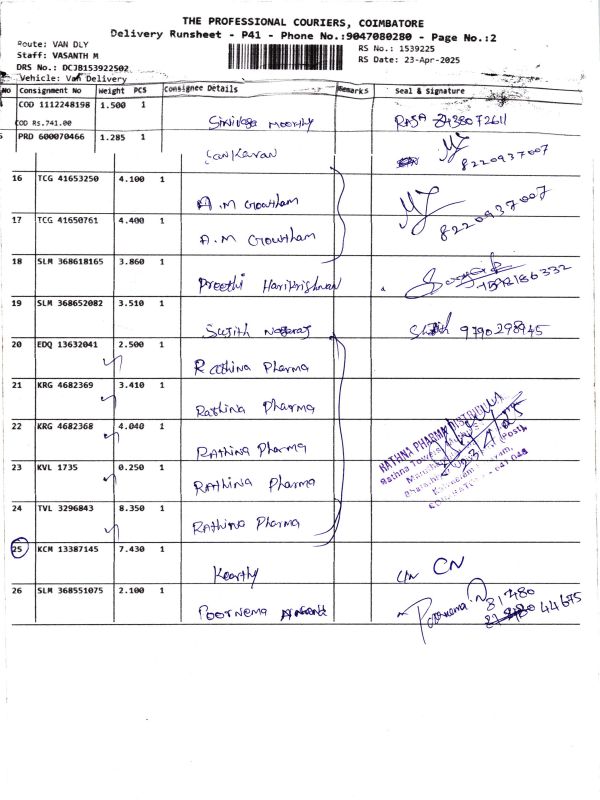 THE PROFESSIONAL COURIERS, COIMBATORE
Delivery Runsheet - P41 - Phone No.:9047080280 - Page No.:2
Route: VAN DLY
RS No.: 1539225
Staff: VASANTH M
RS Date: 23-Apr-2025
DRS No.: DCJB153922502
Vehicle: Van Delivery
No Consignment No Weight PCS Consignee Details Remarks Seal & Signature
COD 1112248198 1.500 1
COD Rs.741.00 Moorthy RASA 8438072611
PRD 600070466 1.285 1
Sankaran 8220937007
16 TCG 41653250 4.100 1
A.M Gowtham 8220937007
17 TCG 41650761 4.400 1
A.M Gowtham
18 SLM 368618165 3.860 1
Preethi Harikrishnan
19 SLM 368652082 3.510 1
Sujith Nagaraj 9790298945
20 EDQ 13632041 2.500 1
Rathina Pharma
21 KRG 4682369 3.410 1
Rathina Pharma
22 KRG 4682368 4.040 1
Rathina Pharma
RATHNA PHARMA DISTRIBUTORS
Rathna Towers
23/4/25
23 KVL 1735 0.250 1
Rathina Pharma
24 TVL 3296843 8.350 1
Rathina Pharma
25 KCM 13387145 7.430 1
Kearthy CN
26 SLM 368551075 2.100 1
Poornema Poornema 81480
44675